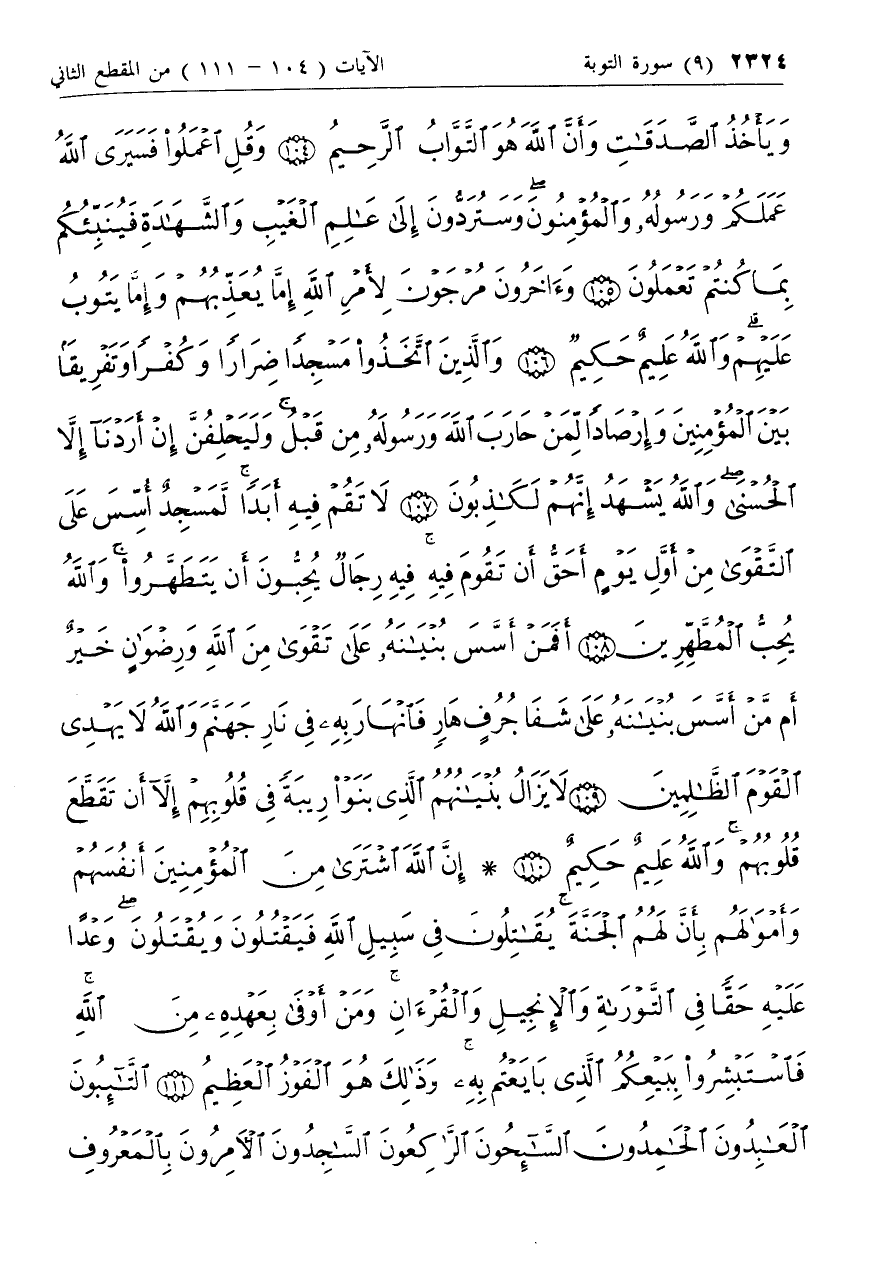 ٢٣٢٤ (٩) سورة التوبة الآيات (١٠٤ - ١١١) من المقطع الثاني
وَيَأْخُذُ ٱلصَّدَقَٰتِ وَأَنَّ ٱللَّهَ هُوَ ٱلتَّوَّابُ ٱلرَّحِيمُ ١٠٤ وَقُلِ ٱعْمَلُوا۟ فَسَيَرَى ٱللَّهُ
عَمَلَكُمْ وَرَسُولُهُۥ وَٱلْمُؤْمِنُونَ ۖ وَسَتُرَدُّونَ إِلَىٰ عَٰلِمِ ٱلْغَيْبِ وَٱلشَّهَٰدَةِ فَيُنَبِّئُكُم
بِمَا كُنتُمْ تَعْمَلُونَ ١٠٥ وَءَاخَرُونَ مُرْجَوْنَ لِأَمْرِ ٱللَّهِ إِمَّا يُعَذِّبُهُمْ وَإِمَّا يَتُوبُ
عَلَيْهِمْ ۗ وَٱللَّهُ عَلِيمٌ حَكِيمٌ ١٠٦ وَٱلَّذِينَ ٱتَّخَذُوا۟ مَسْجِدًا ضِرَارًا وَكُفْرًا وَتَفْرِيقًۢا
بَيْنَ ٱلْمُؤْمِنِينَ وَإِرْصَادًا لِّمَنْ حَارَبَ ٱللَّهَ وَرَسُولَهُۥ مِن قَبْلُ ۚ وَلَيَحْلِفُنَّ إِنْ أَرَدْنَآ إِلَّا
ٱلْحُسْنَىٰ ۖ وَٱللَّهُ يَشْهَدُ إِنَّهُمْ لَكَٰذِبُونَ ١٠٧ لَا تَقُمْ فِيهِ أَبَدًا ۚ لَّمَسْجِدٌ أُسِّسَ عَلَى
ٱلتَّقْوَىٰ مِنْ أَوَّلِ يَوْمٍ أَحَقُّ أَن تَقُومَ فِيهِ ۚ فِيهِ رِجَالٌ يُحِبُّونَ أَن يَتَطَهَّرُوا۟ ۚ وَٱللَّهُ
يُحِبُّ ٱلْمُطَّهِّرِينَ ١٠٨ أَفَمَنْ أَسَّسَ بُنْيَٰنَهُۥ عَلَىٰ تَقْوَىٰ مِنَ ٱللَّهِ وَرِضْوَٰنٍ خَيْرٌ
أَم مَّنْ أَسَّسَ بُنْيَٰنَهُۥ عَلَىٰ شَفَا جُرُفٍ هَارٍ فَٱنْهَارَ بِهِۦ فِى نَارِ جَهَنَّمَ وَٱللَّهُ لَا يَهْدِى
ٱلْقَوْمَ ٱلظَّٰلِمِينَ ١٠٩ لَا يَزَالُ بُنْيَٰنُهُمُ ٱلَّذِى بَنَوْا۟ رِيبَةً فِى قُلُوبِهِمْ إِلَّآ أَن تَقَطَّعَ
قُلُوبُهُمْ ۚ وَٱللَّهُ عَلِيمٌ حَكِيمٌ ١١٠ * إِنَّ ٱللَّهَ ٱشْتَرَىٰ مِنَ ٱلْمُؤْمِنِينَ أَنفُسَهُمْ
وَأَمْوَٰلَهُم بِأَنَّ لَهُمُ ٱلْجَنَّةَ ۚ يُقَٰتِلُونَ فِى سَبِيلِ ٱللَّهِ فَيَقْتُلُونَ وَيُقْتَلُونَ ۖ وَعْدًا
عَلَيْهِ حَقًّا فِى ٱلتَّوْرَىٰةِ وَٱلْإِنجِيلِ وَٱلْقُرْءَانِ ۚ وَمَنْ أَوْفَىٰ بِعَهْدِهِۦ مِنَ ٱللَّهِ ۚ
فَٱسْتَبْشِرُوا۟ بِبَيْعِكُمُ ٱلَّذِى بَايَعْتُم بِهِۦ ۚ وَذَٰلِكَ هُوَ ٱلْفَوْزُ ٱلْعَظِيمُ ١١١ ٱلتَّٰٓئِبُونَ
ٱلْعَٰبِدُونَ ٱلْحَٰمِدُونَ ٱلسَّٰٓئِحُونَ ٱلرَّٰكِعُونَ ٱلسَّٰجِدُونَ ٱلْءَامِرُونَ بِٱلْمَعْرُوفِ